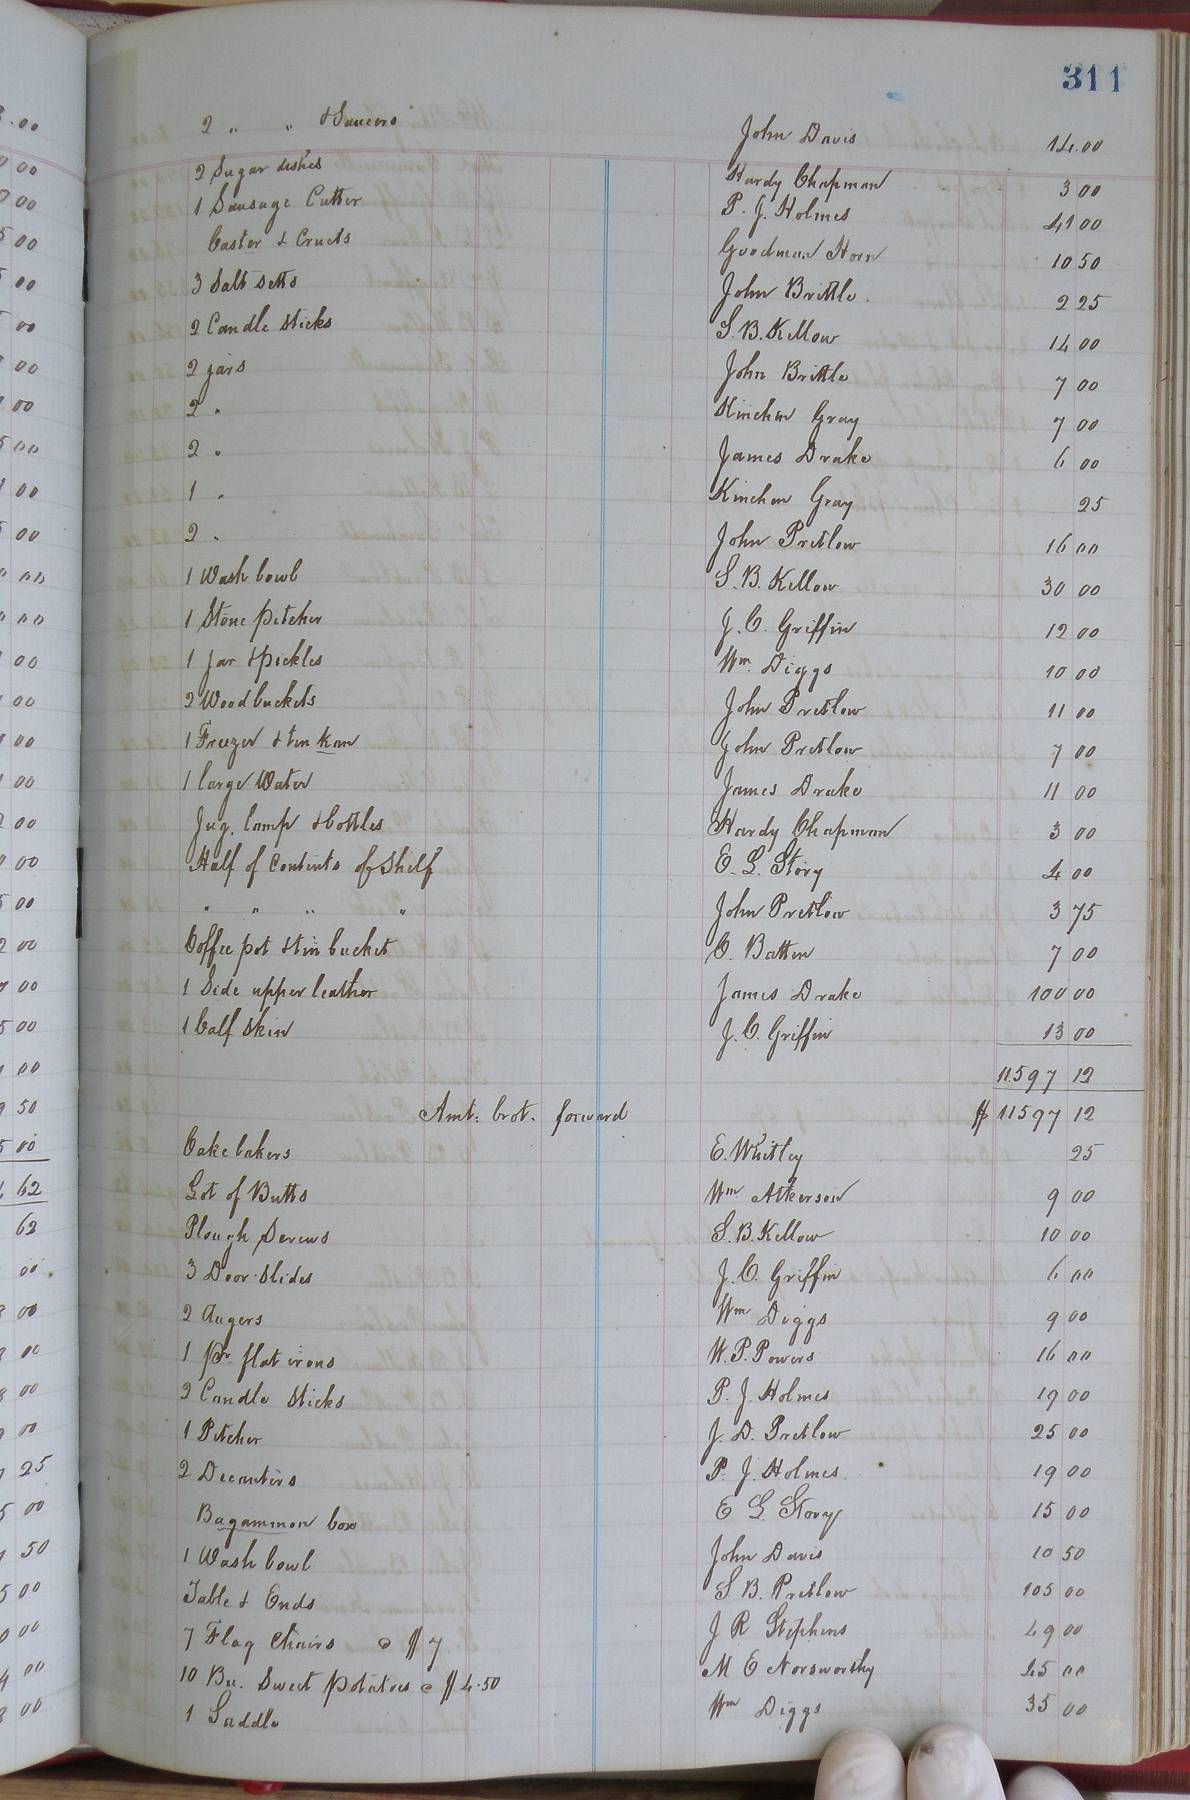 311
2 " " & Saucers John Davis 14.00
2 Sugar dishes Hardy Chapman 3 00
1 Sausage Cutter P. J. Holmes 41 00
Caster & Cruets Goodman Horn 10 50
3 Salt setts John Brittle. 2 25
2 Candle Sticks S. B. Kellow 14 00
2 jars John Brittle 7 00
2 " Kinchen Gray 7 00
2 " James Drake 6 00
1 " Kinchen Gray 25
2 " John Pretlow 16 00
1 Wash bowl S. B. Kellow 30 00
1 Stone pitcher J. C. Griffin 12 00
1 Jar & Pickles Wm. Diggs 10 00
2 Wood buckets John Pretlow 11 00
1 Freezer & tin Kan John Pretlow 7 00
1 large Water James Drake 11 00
Jug, lamp & bottles Hardy Chapman 3 00
Half of Contents of Shelf E. L. Story 4 00
" " " " John Pretlow 3 75
Coffee pot & tin bucket C. Batten 7 00
1 Side upper leather James Drake 100 00
1 Calf Skin J. C. Griffin 13 00
11597 12
Amt. brot. forward $ 11597 12
Cake bakers E. Whitley 25
Lot of Butts Wm Atkerson 9 00
Plough Screws S. B. Kellow 10 00
3 Door Slides J. C. Griffin 6 00
2 Augers Wm Diggs 9 00
1 pr flat irons W. P. Powers 16 00
2 Candle Sticks P. J. Holmes 19 00
1 Pitcher J. D. Pretlow 25 00
2 Decanters P. J. Holmes 19 00
Bagammon box E L Story 15 00
1 Wash bowl John Davis 10 50
Table & Ends S B. Pretlow 105 00
7 Flag Chairs @ $ 7 J R Stephens 49 00
10 Bu. Sweet Potatoes @ $ 4.50 M E Norsworthy 45 00
1 Saddle Wm Diggs 35 00